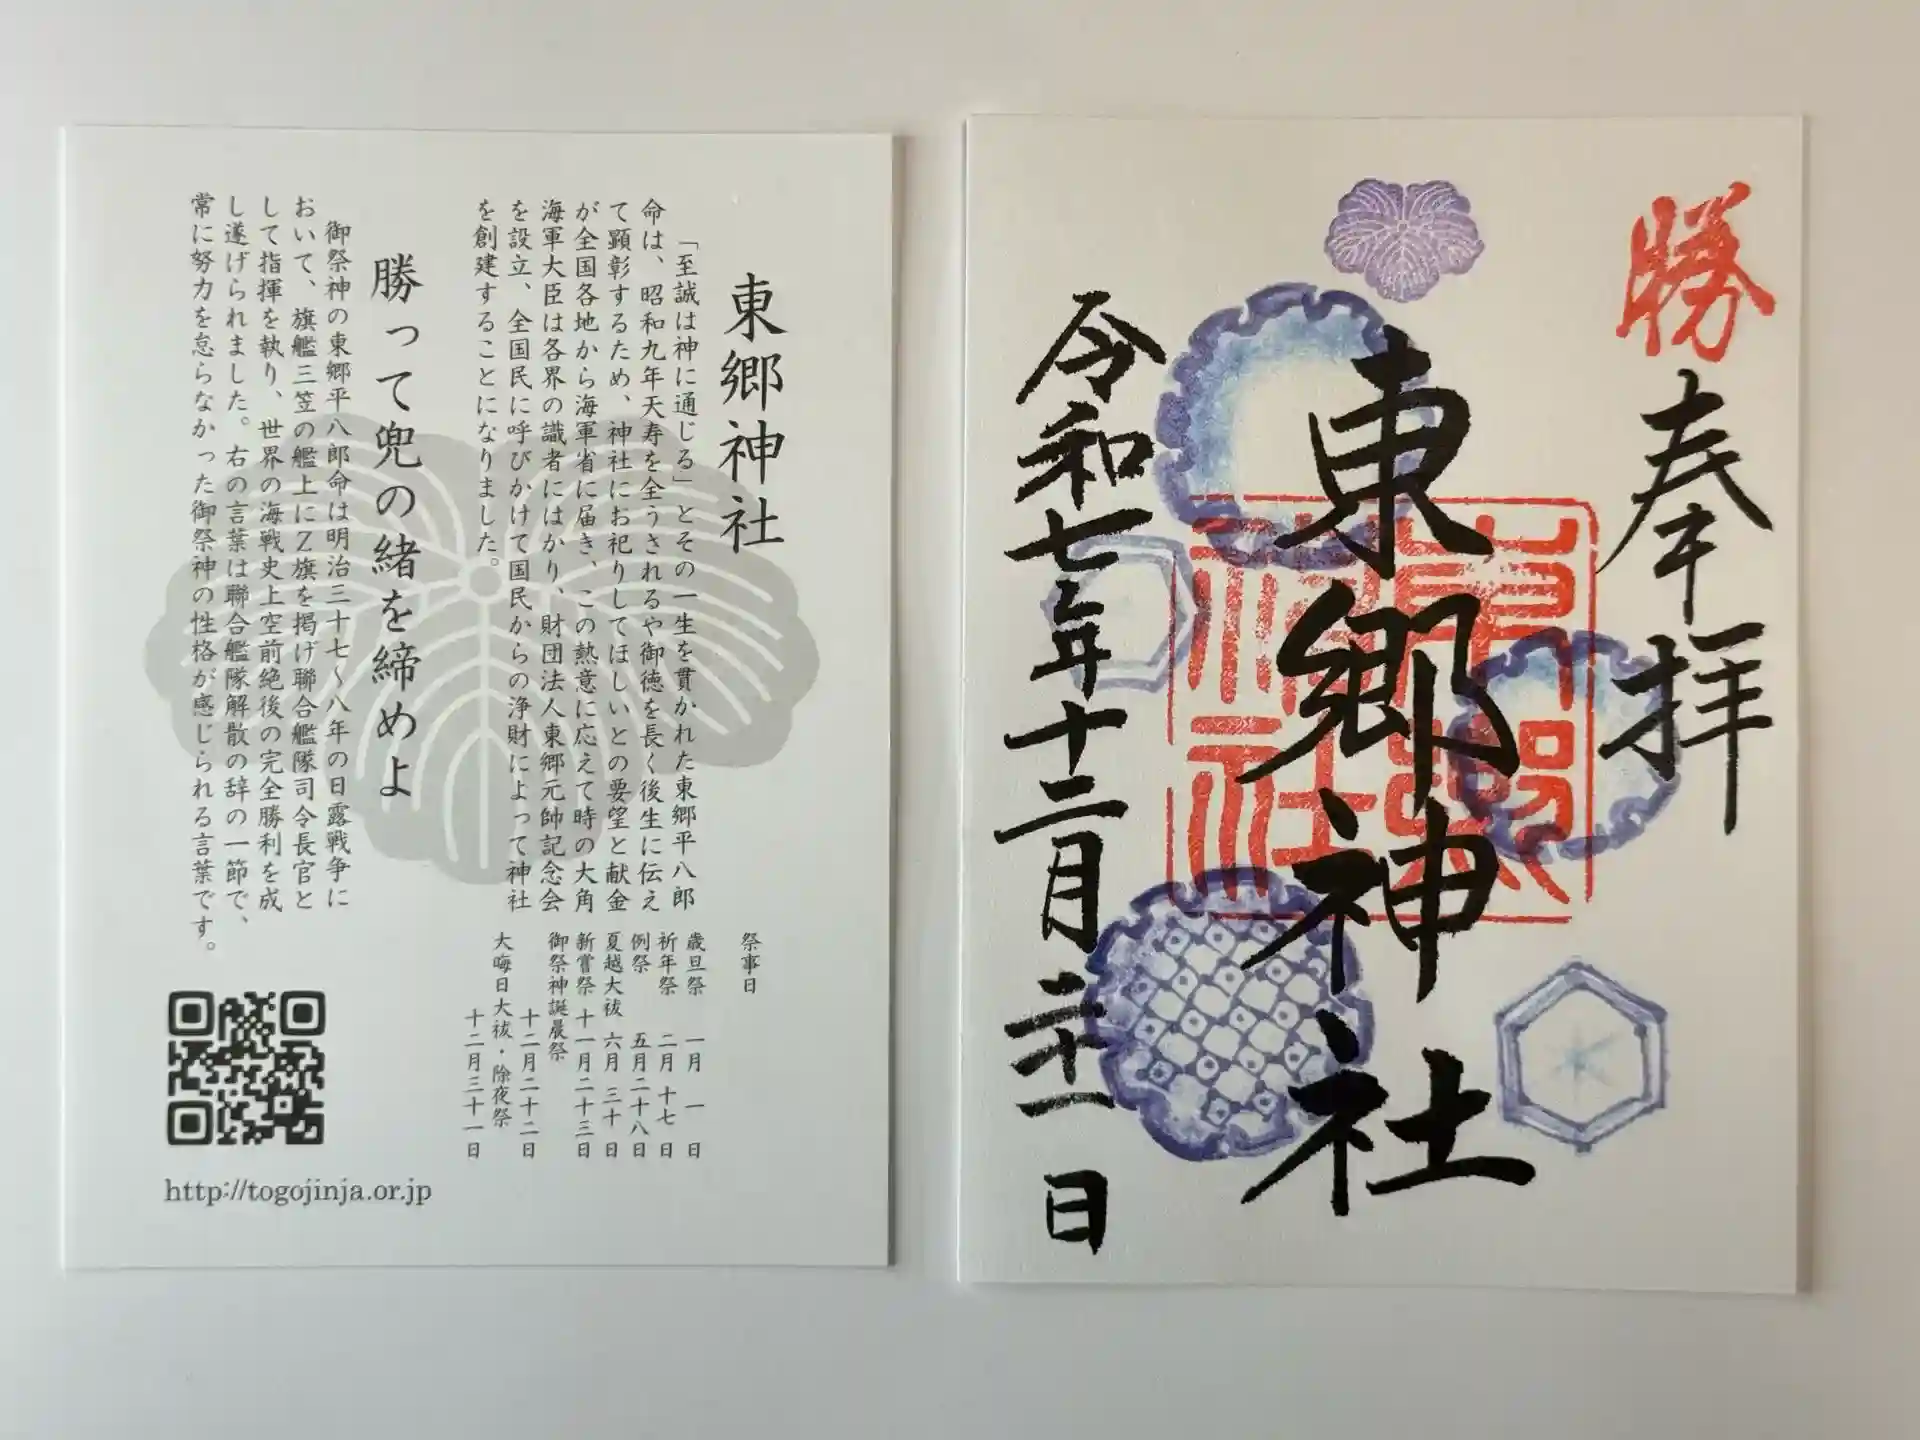 東郷神社
「至誠は神に通じる」とその一生を貫かれた東郷平八郎
命は、昭和九年天寿を全うされるや御徳を長く後生に伝え
て顕彰するため、神社にお祀りしてほしいとの要望と献金
が全国各地から海軍省に届き、この熱意に応えて時の大角
海軍大臣は各界の識者にはかり、財団法人東郷元帥記念会
を設立、全国民に呼びかけて国民からの浄財によって神社
を創建することになりました。
勝って兜の緒を締めよ
御祭神の東郷平八郎命は明治三十七〜八年の日露戦争に
おいて、旗艦三笠の艦上にZ旗を掲げ聯合艦隊司令長官と
して指揮を執り、世界の海戦史上空前絶後の完全勝利を成
し遂げられました。右の言葉は聯合艦隊解散の辞の一節で、
常に努力を怠らなかった御祭神の性格が感じられる言葉です。
祭事日
歳旦祭 一月 一日
祈年祭 二月 十七日
例祭 五月二十八日
夏越大祓 六月 三十日
新嘗祭 十一月二十三日
御祭神誕辰祭
十二月二十二日
大晦日大祓・除夜祭
十二月三十一日
http://togojinja.or.jp
勝
奉拝
東郷神社
東郷神社
令和七年十二月二十一日